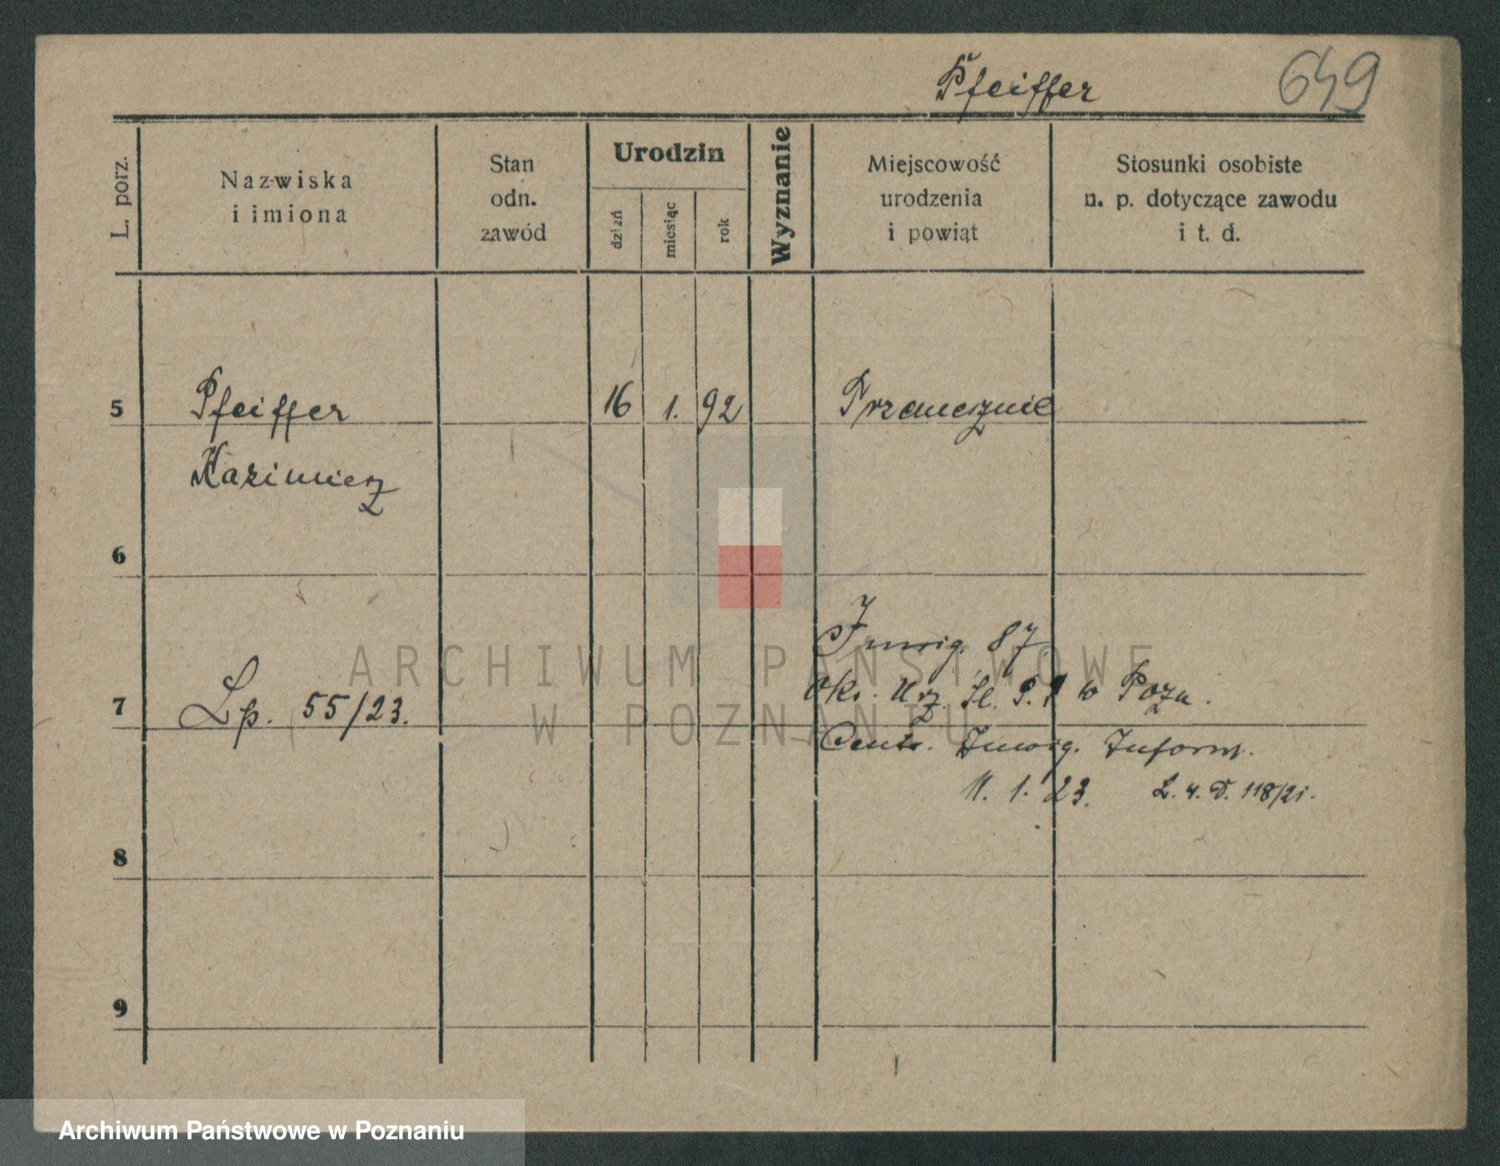 Pfeiffer 649
L. porz.
Nazwiska
i imiona
Stan
odn.
zawód
Urodzin
dzień
miesiąc
rok
Wyznanie
Miejscowość
urodzenia
i powiąt
Stosunki osobiste
n. p. dotyczące zawodu
i t. d.
5 Pfeiffer 16 1. 92
Kazimierz
6
87
7 Lp. 55/23. w Pozn.
Centr. Inform.
1. 23. 118/21.
8
9
ARCHIWUM PAŃSTWOWE
W POZNANIU
Archiwum Państwowe w Poznaniu